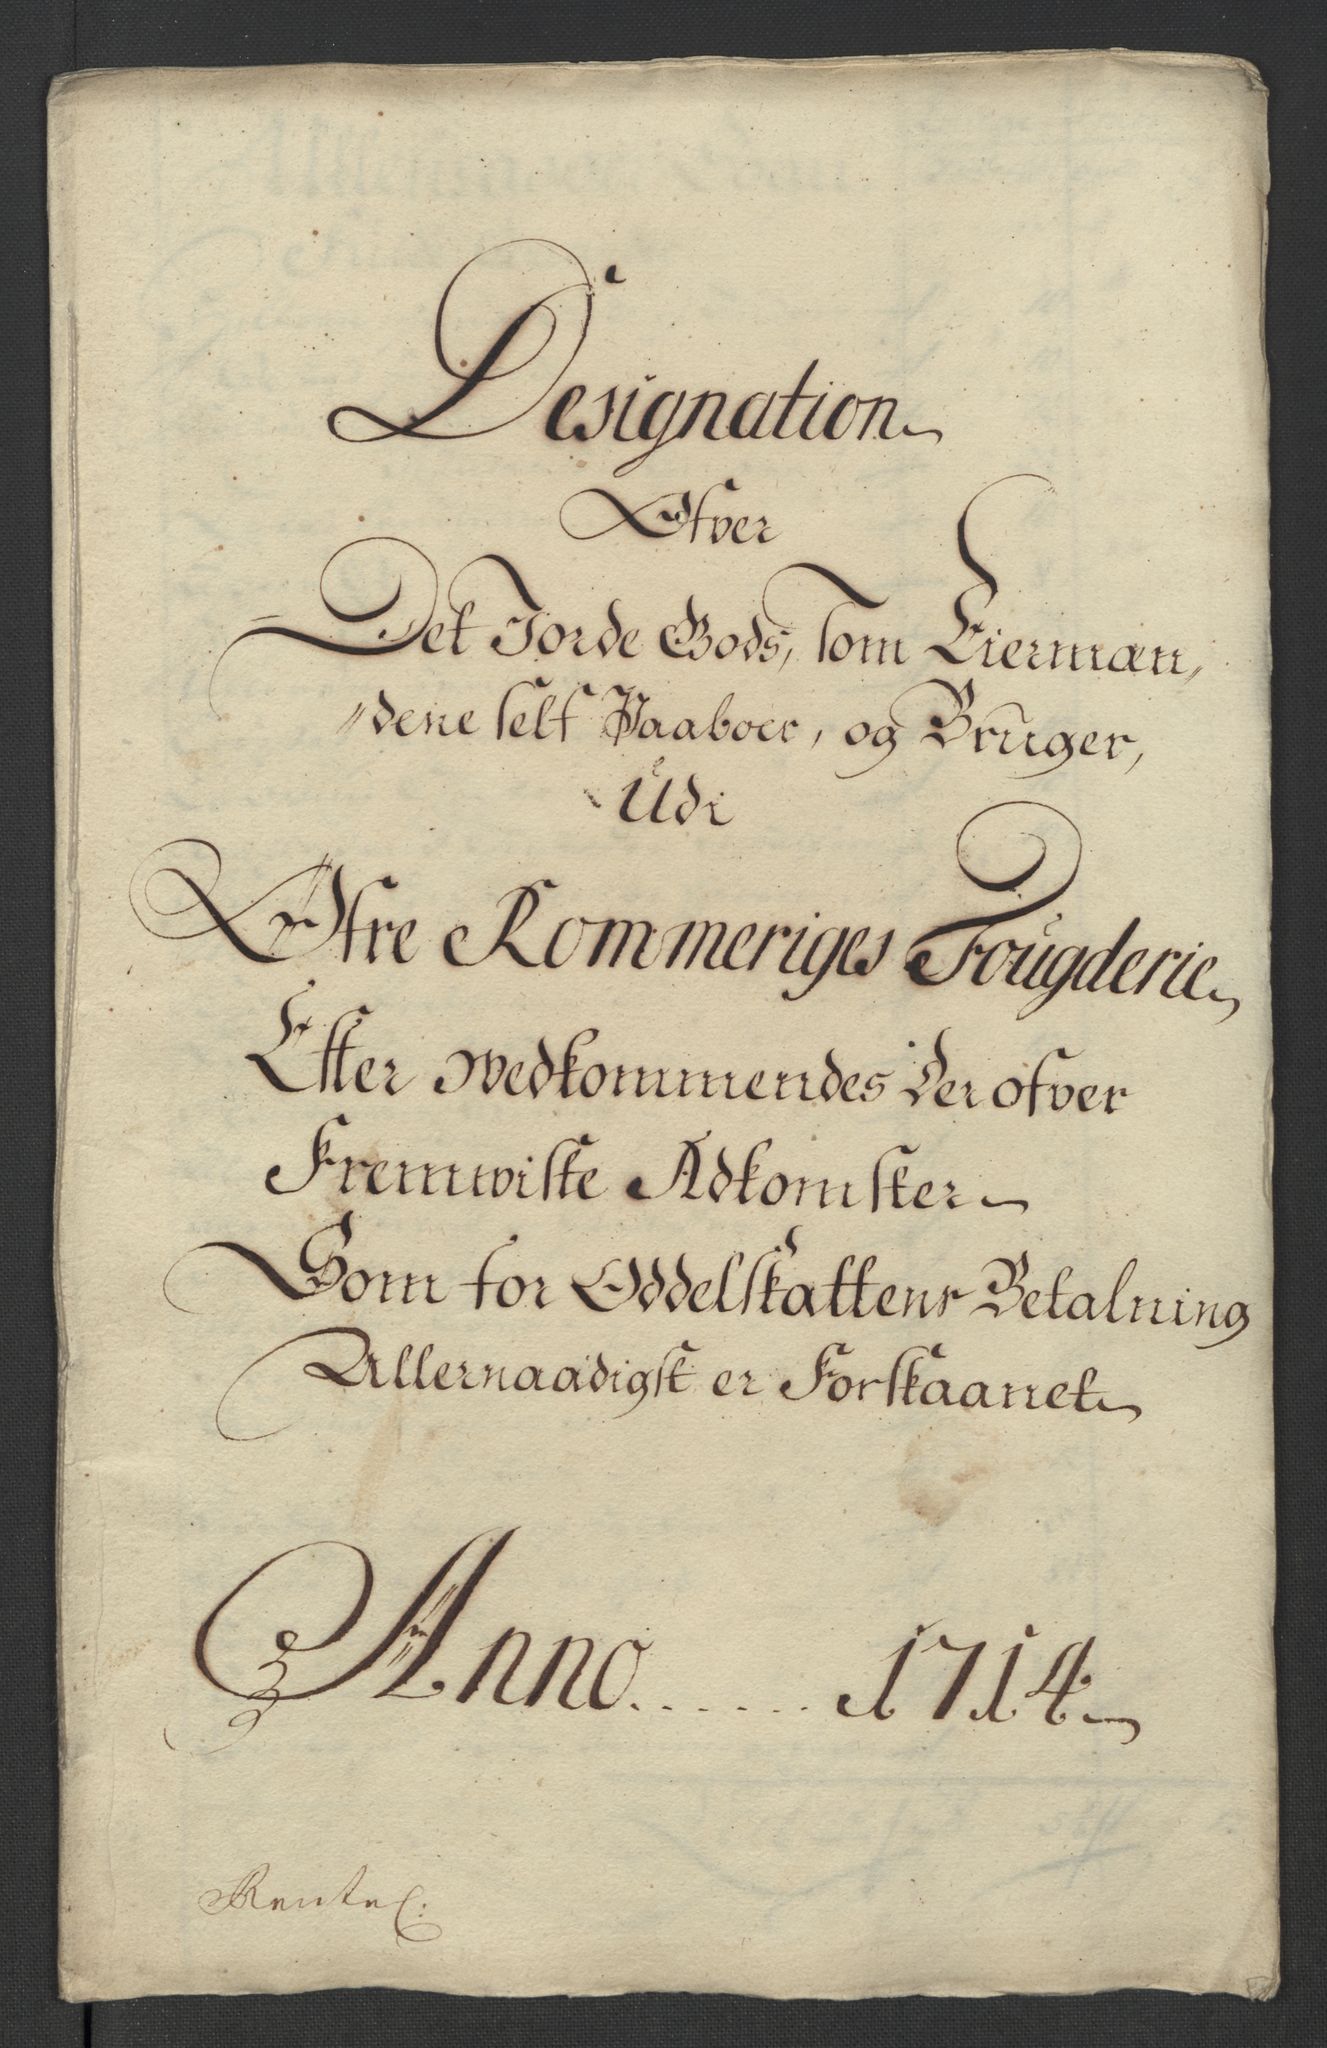 Designation
Ofver
Det Jorde Gods, som Eierman„
„dene self Paaboer, og Bruger,
Udi
Øfre Rommeriges Fougderie
Efter wedkommendes der ofver
Fremwiste Adkomster
Som for Oddelskattens Betalning
Allernaadigst er Forskaanet
Anno...... 1714